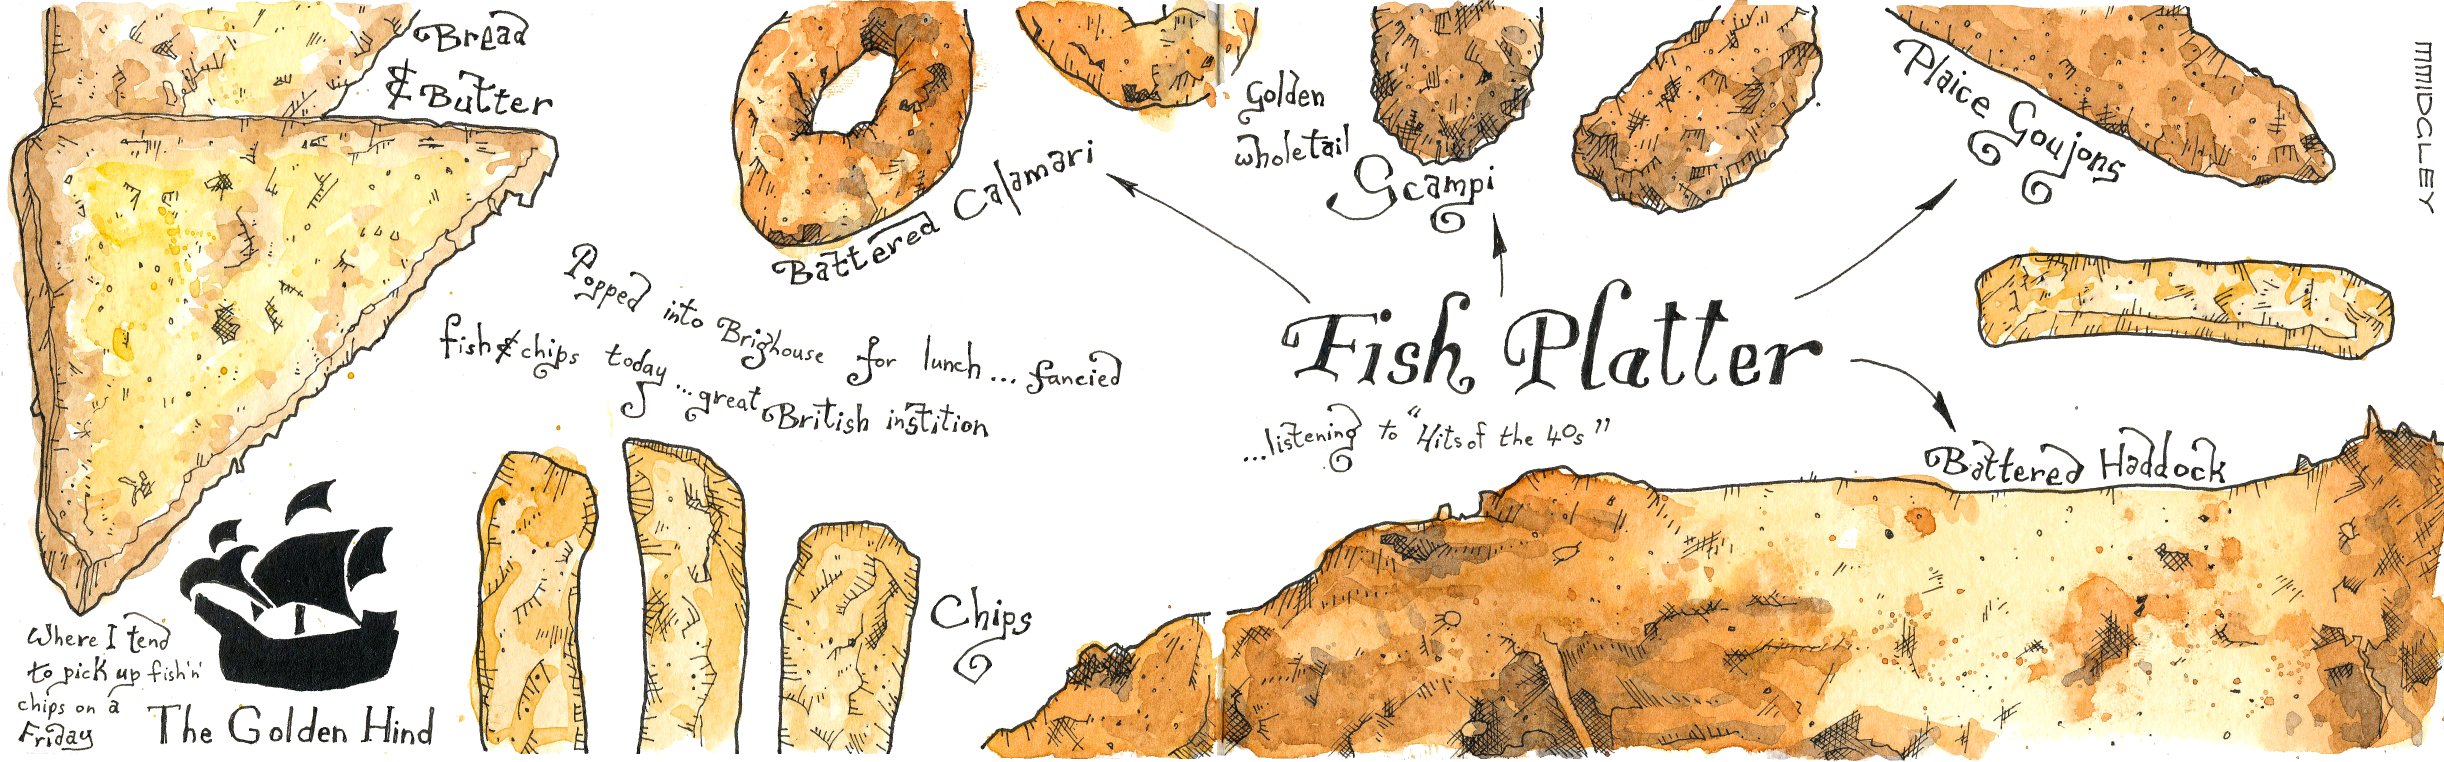 Bread
& Butter
Battered Calamari
Golden
wholetail
Scampi
Plaice Goujons
MMIDCLLEY
Popped into Brighouse for lunch... fancied
fish & chips today...great British instition
Fish Platter
...listening to "Hits of the 40s"
Battered Haddock
Chips
Where I tend
to pick up fish 'n'
chips on a
Friday
The Golden Hind